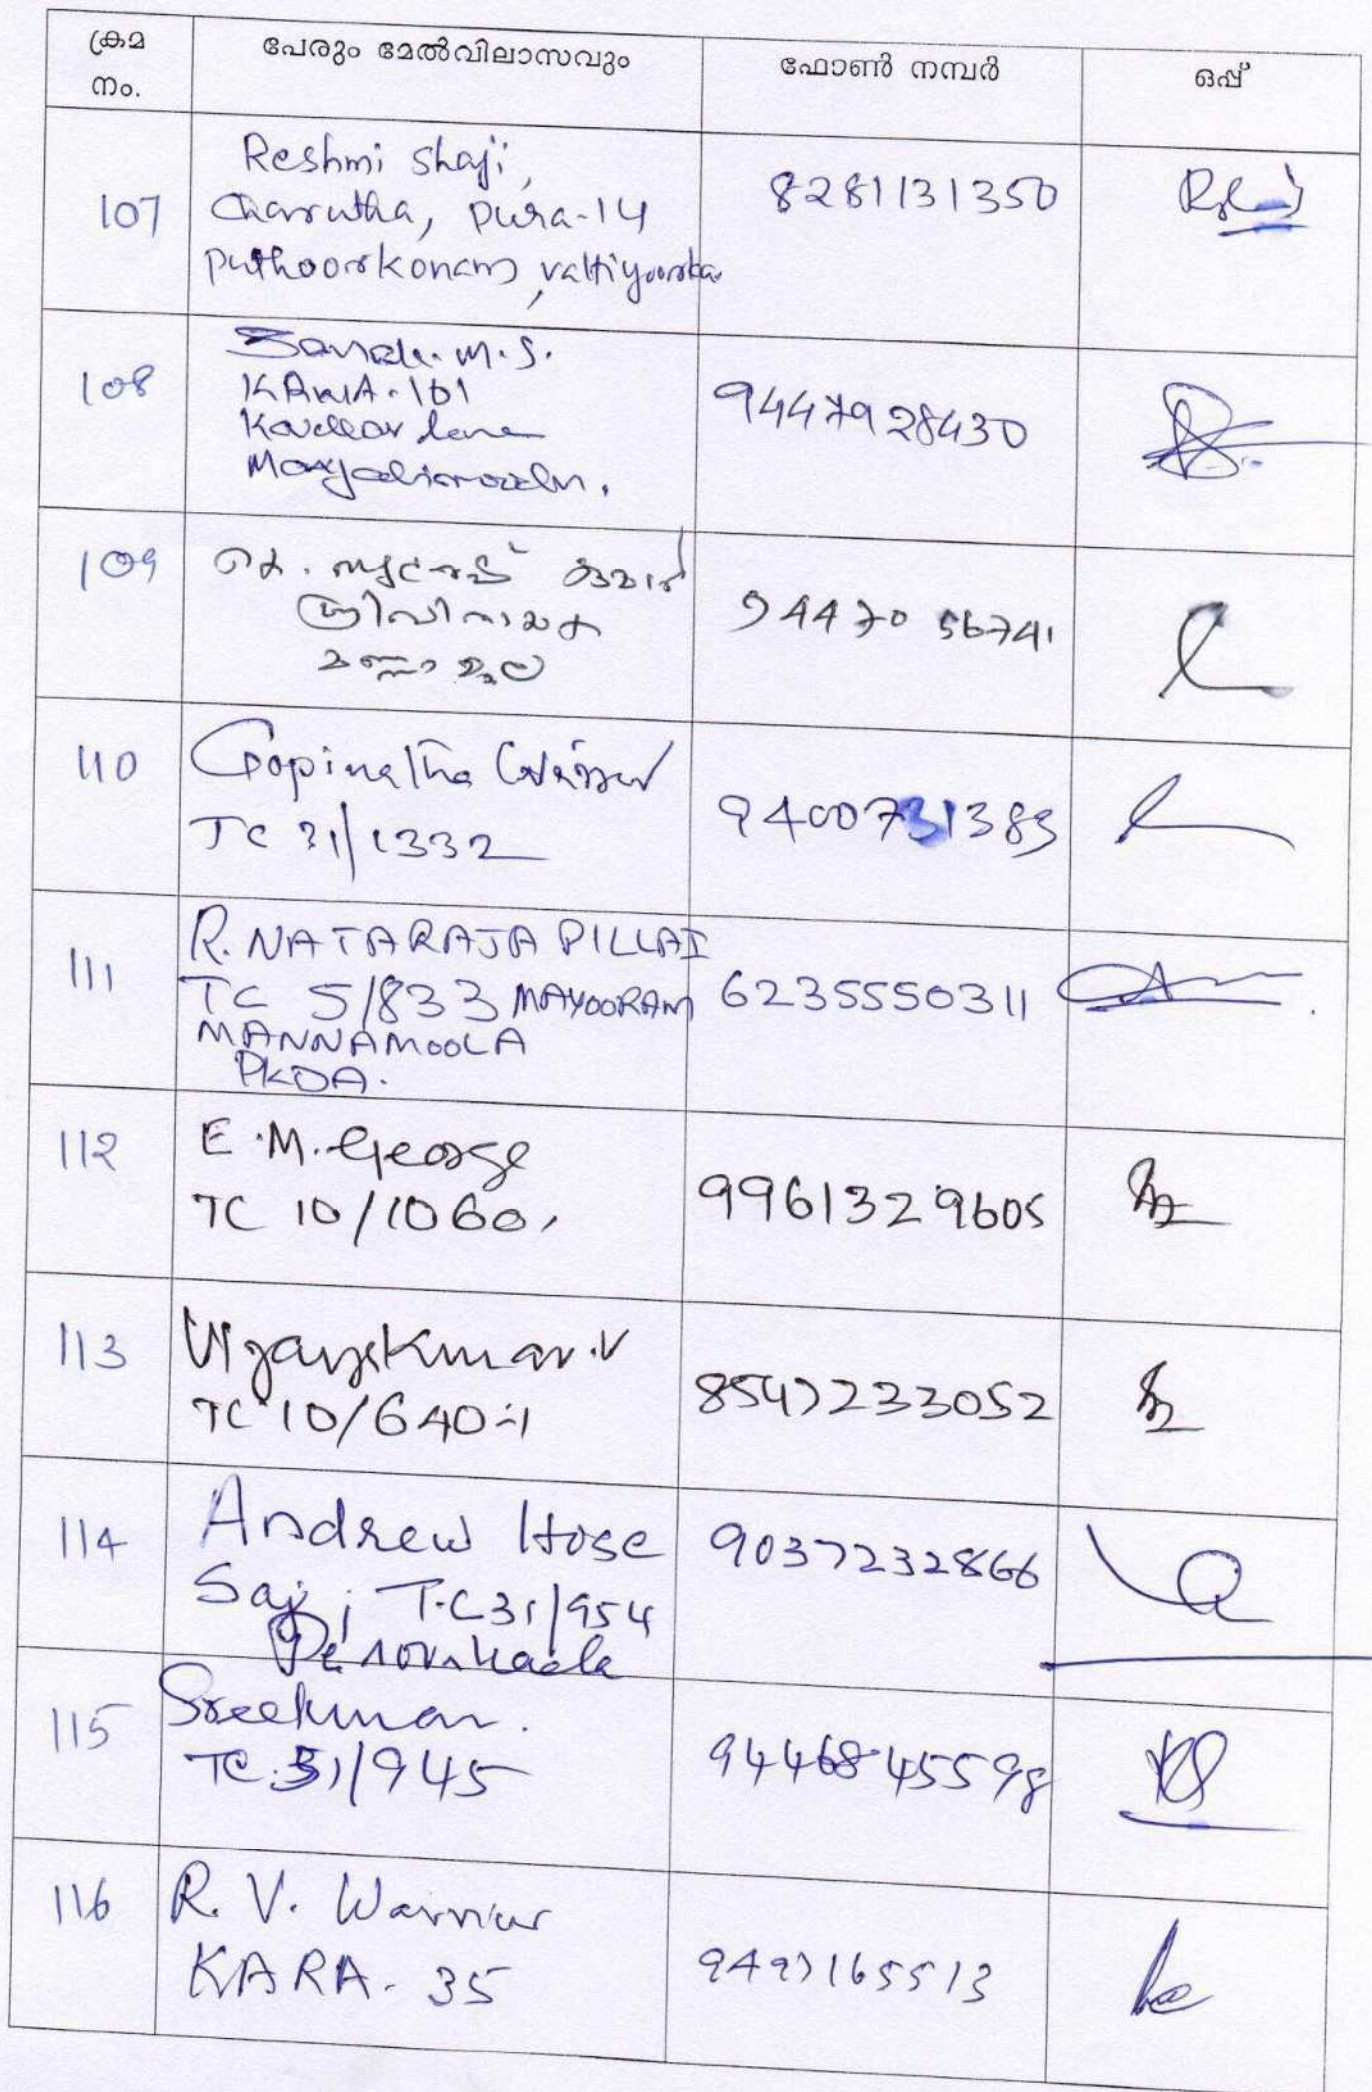 ക്രമ നം.
പേരും മേൽവിലാസവും
ഫോൺ നമ്പർ
ഒപ്പ്
107
Reshmi Shaji,
Charutha, Pura-14
Puthoorkonam, vattiyoorka
8281131350
108
M.S.
101
lane
9447928430
109
കെ. കുമാർ
ശ്രീവിനായക
മണ്ണാമൂല
94470 56741
110
Gopinatha
TC 31/1332
9400731383
111
R. NATARAJA PILLAI
TC 5/833 MAYOORAM
MANNAMOOLA
PKDA.
6235550311
112
E.M. George
TC 10/1060,
9961329605
113
Vijayakumar.V
TC 10/640-1
8547233052
114
Andrew Hose
Saji, T.C 31/954
9037232866
115
Sreekumar.
TC.31/945
9446845598
116
R. V. Warrier
KARA- 35
9497165513